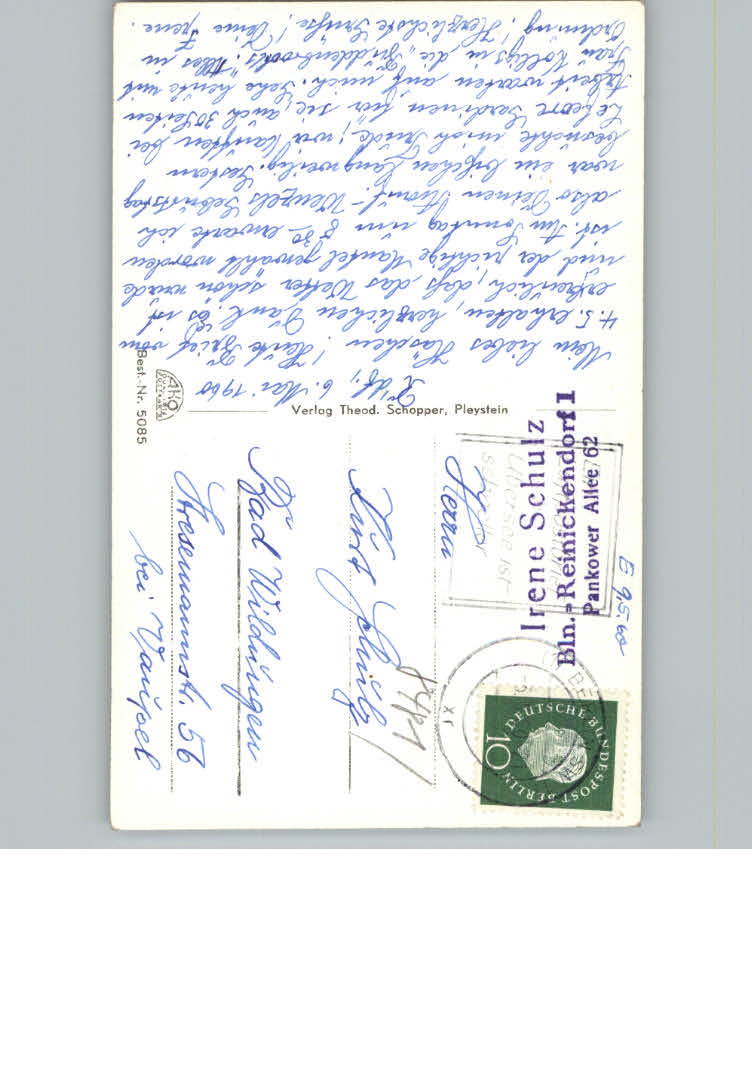 6. Mai 1960
Mein liebes Häschen! Heute Brief vom
4.5. erhalten, herzlichen Dank. Es ist
erfreulich, daß das Wetter schön wurde
und der richtige Mantel gewählt worden
ist. Am Sonntag um 8.30 erwarte ich
also Deinen Anruf. – Wenzels Geburtstag
war ein bißchen langweilig. Gestern
besuchte mich Trude; wir kauften bei
Leheort Gardinen für sie; auch 30 Seiten
Arbeit warten auf mich. Gehe heute mit
Frau Kolligs in die „Buddenbrooks". Alles in
Ordnung! Herzlichste Grüße! Deine Irene.
AKO
Best.-Nr. 5085
Verlag Theod. Schopper, Pleystein
Irene Schulz
Bln.-Reinickendorf 1
Pankower Allee 62
E 9.5.60
DEUTSCHE BUNDESPOST BERLIN
10
Herrn
Kurt Schulz
Bad Wildungen
Stresemannstr. 56
bei Vaupel